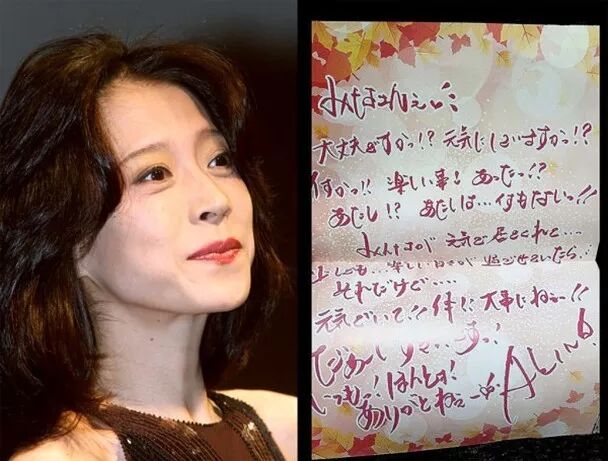 みんなさんえ♡
大丈夫ですかっ!? 元気にしていますかっ!?
何かっ!! 楽しい事! あったっ!?
あたし!? あたしは…何もないっ!!
みんなが 元気で居てくれて…
少しでも…楽しい 過ごせていたら!
それだけで….
元気でいて!! 体!! 大事にねぇー!!
いつも!ほんとっ!
ありがとねぇー
AKINA.